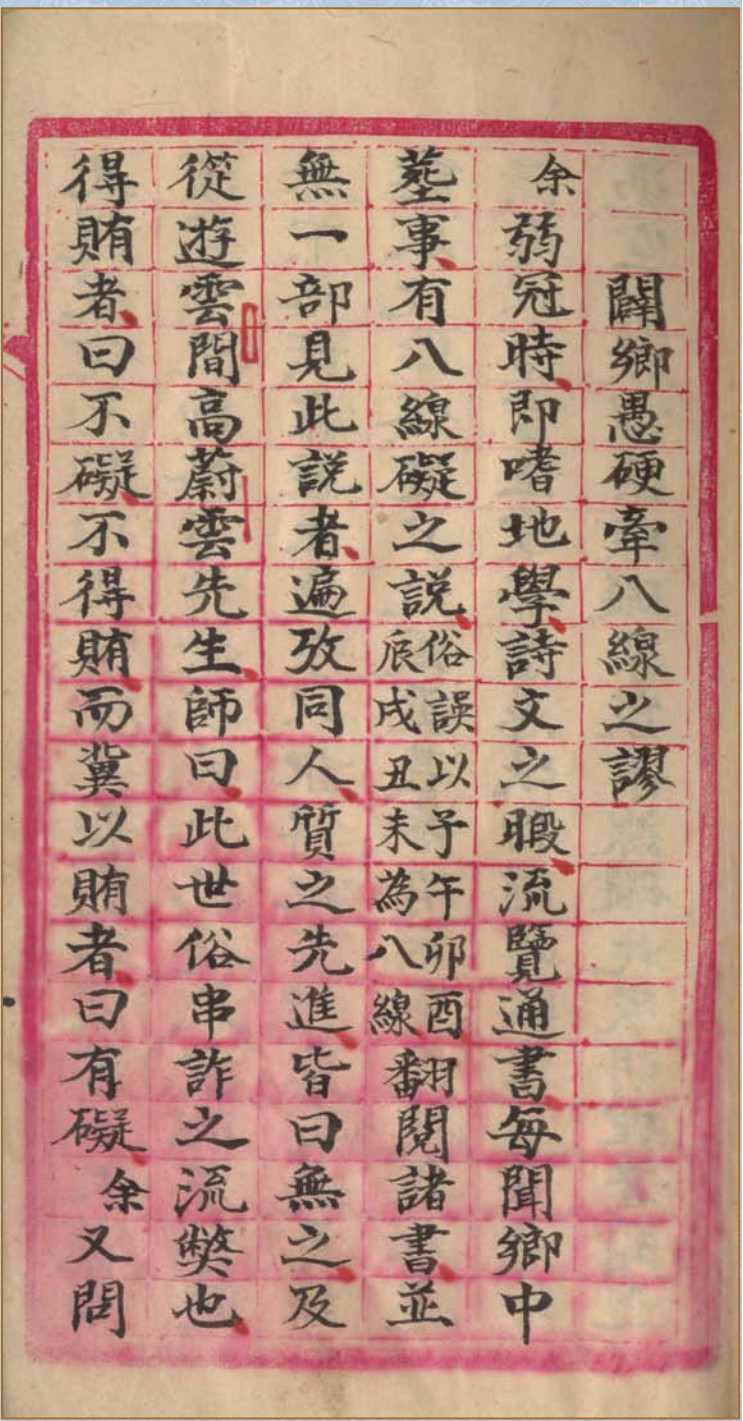 闢鄉愚硬牽八線之謬
余弱冠時即嗜地學詩文之暇流覽通書每聞鄉中
塟事有八線礙之説俗誤以子午卯酉辰戌丑未為八線翻閱諸書並
無一部見此説者遍攷同人質之先進皆曰無之及
從遊雲間高蔚雲先生師曰此世俗串詐之流獘也
得賄者曰不礙不得賄而冀以賄者曰有礙余又問